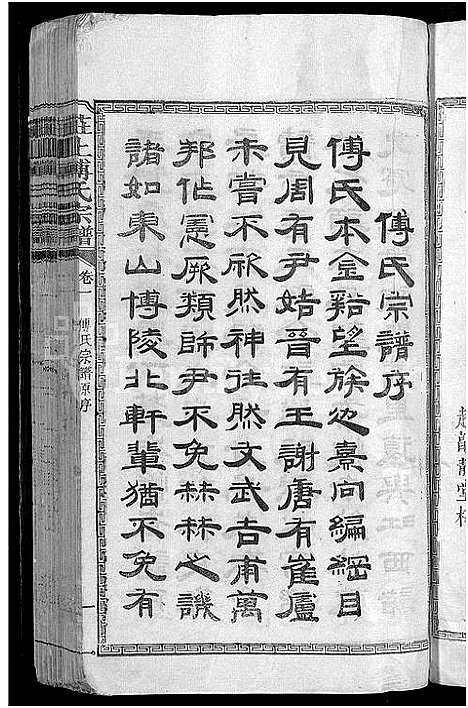 傅氏宗譜序
傅氏本金谿望族也熹向編綱目
見周有尹姞晉有王謝唐有崔盧
未嘗不欣然神往然文武吉甫萬
邦作憲厥類師尹不免赫赫之譏
諸如東山博陵北軒輩猶不免有
莊上傅氏宗譜
卷一
傅氏宗譜原序
一